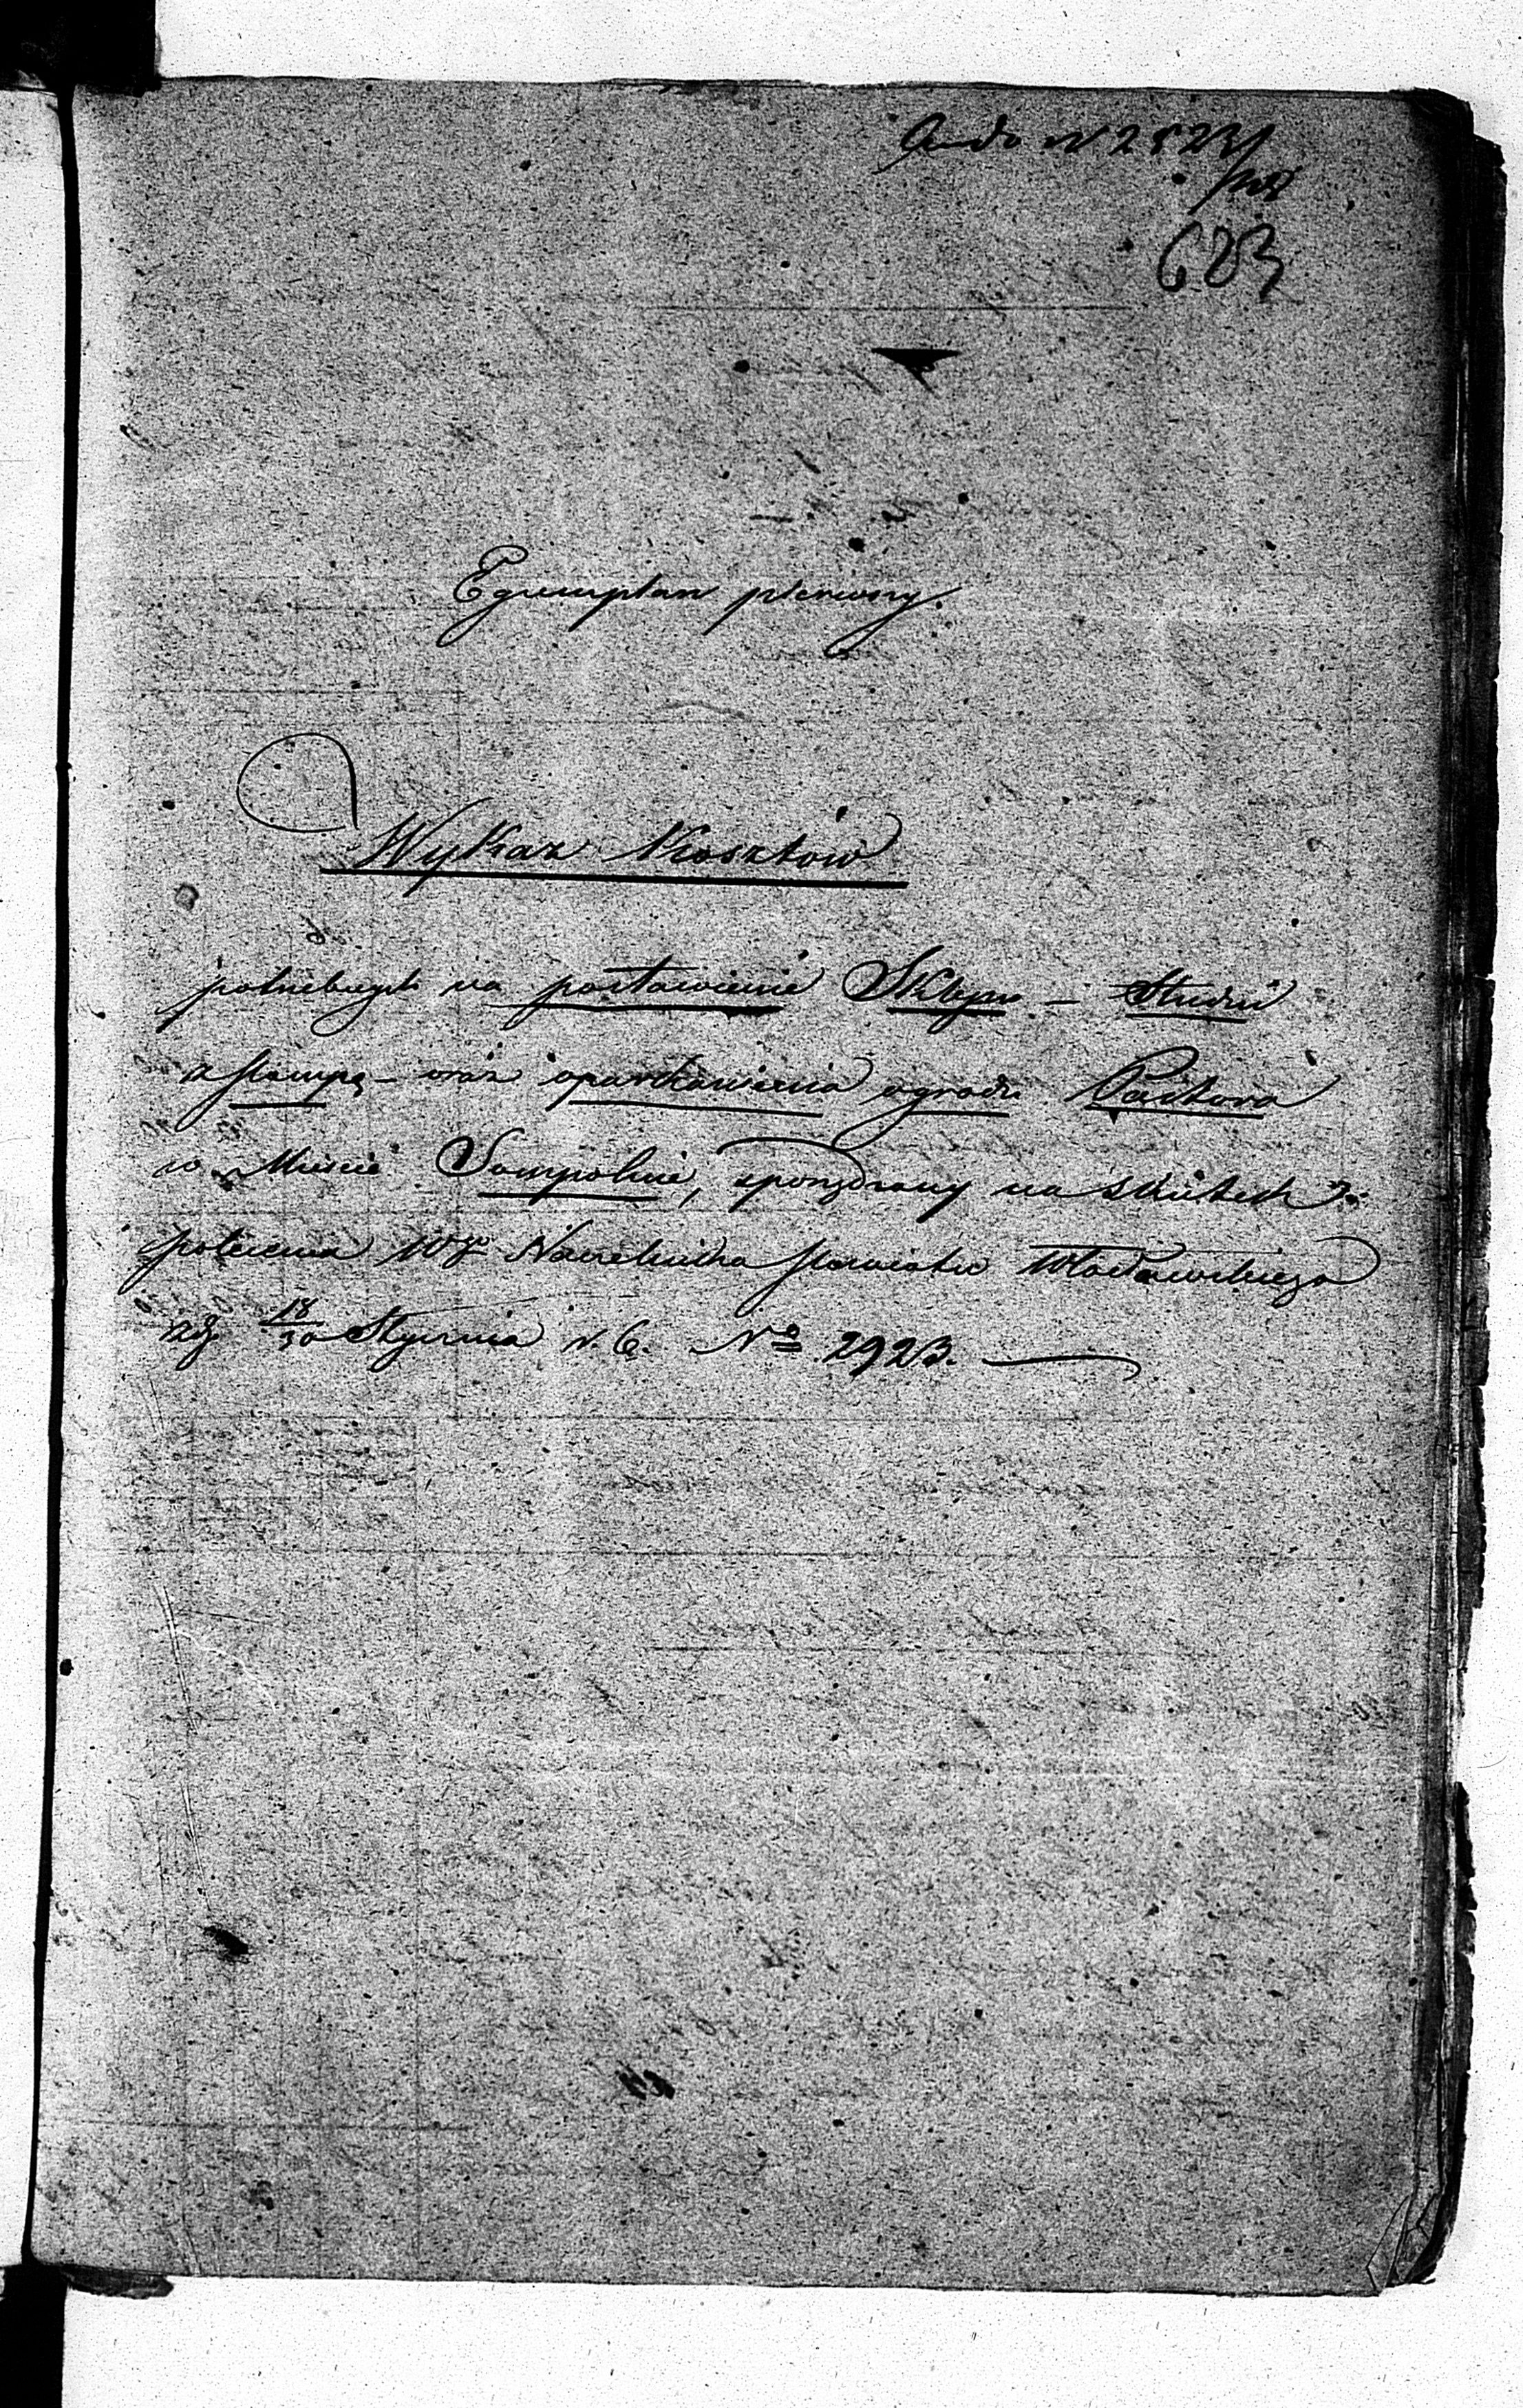 ad N 2523/
683
Egzemplarz pierwszy.
Wykaz Kosztów
potrzebnych na postawienie Sklepu – Studni
z pompą – oraz oparkanienia ogrodu Pastora
w Mieście Sompolnie, sporządzony na skutek
polecenia Wgo Naczelnika Powiatu Włocławskiego
z d. 18/30 Stycznia r. b. No 2923.